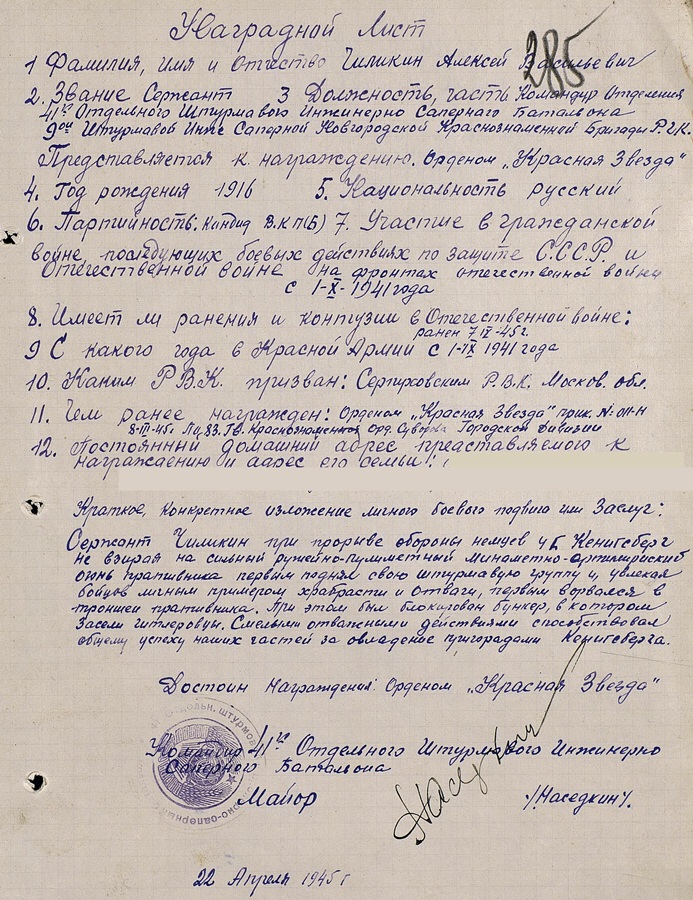 Наградной Лист
285
1 Фамилия, имя и Отчество Чиликин Алексей Васильевич
2. Звание Сержант 3 Должность, часть Командир Отделения
41го Отдельного Штурмавого Инженерно Сапернаго Баталъона
9ой Штурмавой Инже Саперной Новгородской Краснознаменной Бригады Р.Г.К.
Представляется к награждению. Орденом „Красная Звезда"
4. Год рождения 1916 5. Национальность русский
6. Партийность: Кандид В.К.П(Б) 7. Участие в гражданской
войне, последующих боевых действиях по защите С.С.С.Р. и
Отечественной войне на фронтах отечественной войны
с 1-X-1941 года
8. Имеет ли ранения и контузии в Отечественной войне:
ранен 7 IV-45г.
9 С какого года в Красной Армии с 1-IX 1941 года
10. Каким Р.В.К. призван: Серпуховским Р.В.К. Москов. обл.
11. Чем ранее награжден: Орденом „Красная Звезда" прик. N-011-Н
8-III-45г. 83. Гв. Краснознаменной Орд. Суворова Городской Дивизии
12. Постоянный домашний адрес представляемого к
награждению и адрес его семьи:
Краткое, конкретное изложение личного боевого подвига или Заслуг:
Сержант Чиликин при прорыве обороны немцев у г. Кенигсберг
не взирая на сильный ружейно-пулиметный Минаметно-артилирийский
огнь пративника первым поднял свою штурмавую группу и, увлекая
бойцов личным примером храбрасти и Отваги, первым ворвался в
троншеи пративника. При этом был блокирован бункер, в котором
Засели гитлеровцы. Смелыми отважными действиями способствовал
общему успеху наших частей за овладение пригорадами Кенигсберга.
Достоин Награждения Орденом „Красная Звезда"
Командир 41го Отдельного Штурмавого Инженерно
Сапернаго Баталъона
Майор Наседкин /Наседкин/.
22 Апреля 1945 г